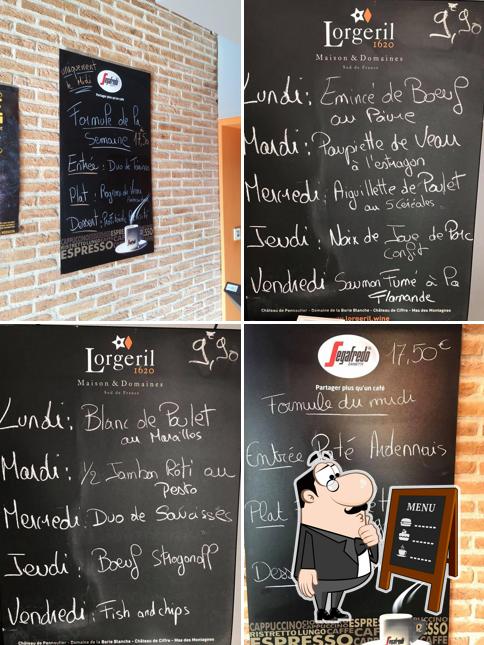 uniquement
le Midi
Segafredo
Partagez plus qu'un café
Formule de la
Semaine 17,50
Entrée : Duo de
Plat : Rognons de Veau
Dessert :
CAPPUCCINO
ESPRESSO
Lorgeril
1620
Maison & Domaines
Sud de France
9€,90
Lundi : Emincé de Boeuf
au Poivre
Mardi : Paupiette de Veau
à l'estragon
Mercredi : Aiguillette de Poulet
au 5 céréales
Jeudi : Noix de Joue de Porc
Confit
Vendredi Saumon Fumé à la
Flamande
Château de Pennautier - Domaine de la Borie Blanche - Château de Ciffre - Mas des Montagnes
lorgeril.wine
Lorgeril
1620
Maison & Domaines
Sud de France
9€,90
Lundi : Blanc de Poulet
au Moraillos
Mardi : 1/2 Jambon Rôti au
Pesto
Mercredi : Duo de Saucisses
Jeudi : Boeuf Strogonoff
Vendredi : Fish and chips
Château de Pennautier - Domaine de la Borie Blanche - Château de Ciffre - Mas des Montagnes
Segafredo
ZANETTI
17,50€
Partager plus qu'un café
Formule du midi
Entrée Paté Ardennais
Plat
Dess
MENU
CAPPUCCINO ESPRE
RISTRETTO LUNGO CAFFE
ESPRESSO